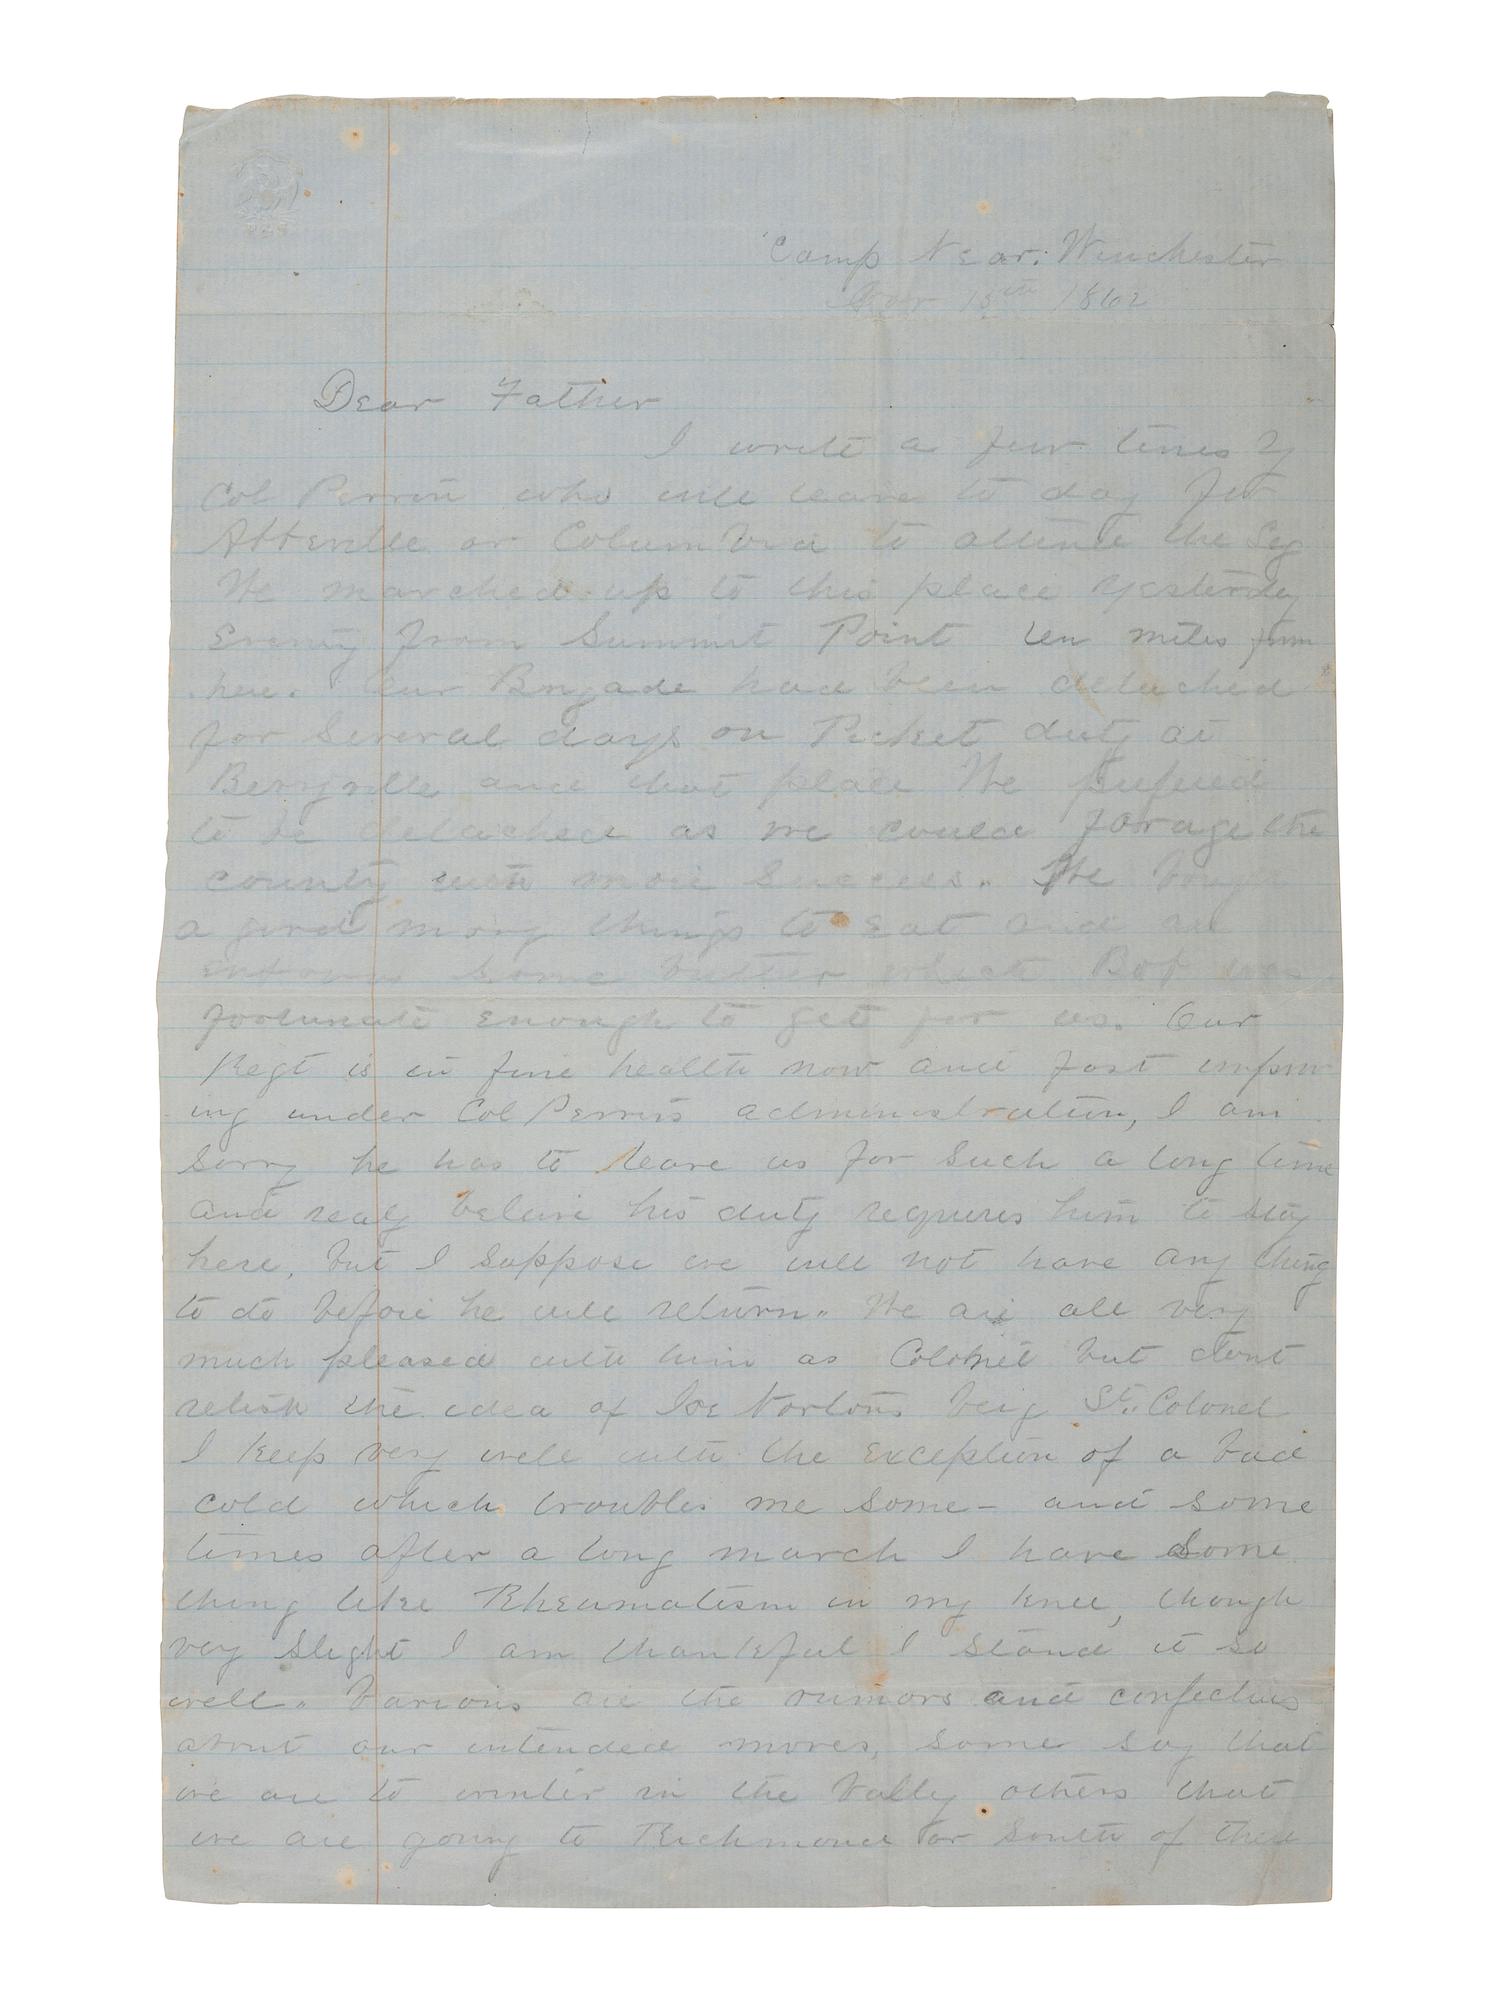 Camp Near: Winchester
Nov 15th 1862
Dear Father
I write a few lines by
Col Perrin who will leave to day for
Abbeville or Columbia to attend the Leg
We marched up to this place yesterday
Evening from Summit Point ten miles from
here. Our Brigade had been detached
for Several days on Picket duty at
Berryville and that place We prefered
to be detached as we could forage the
county with more Success. We bough
a good many things to Eat and
some butter which Bob was
fortunate Enough to get for us. Our
Regt is in fine health now and fast improv
ing under Col Perrin's administration, I am
Sorry he has to leave us for Such a long time
and realy beleive his duty requires him to stay
here, but I Suppose we will not have any thing
to do before he will return. We are all very
much pleased with him as Colonel but dont
relish the idea of Joe Norton's being Lt. Colonel
I keep very well with the Exception of a bad
cold which troubles me Some - and Some
times after a long march I have Some
thing like Rheumatism in my knee, though
very Slight I am thankful I Stand it so
well. Various are the rumors and
about our intended moves, Some say that
we are to winter in the Vally others that
we are going to Richmond or South of there